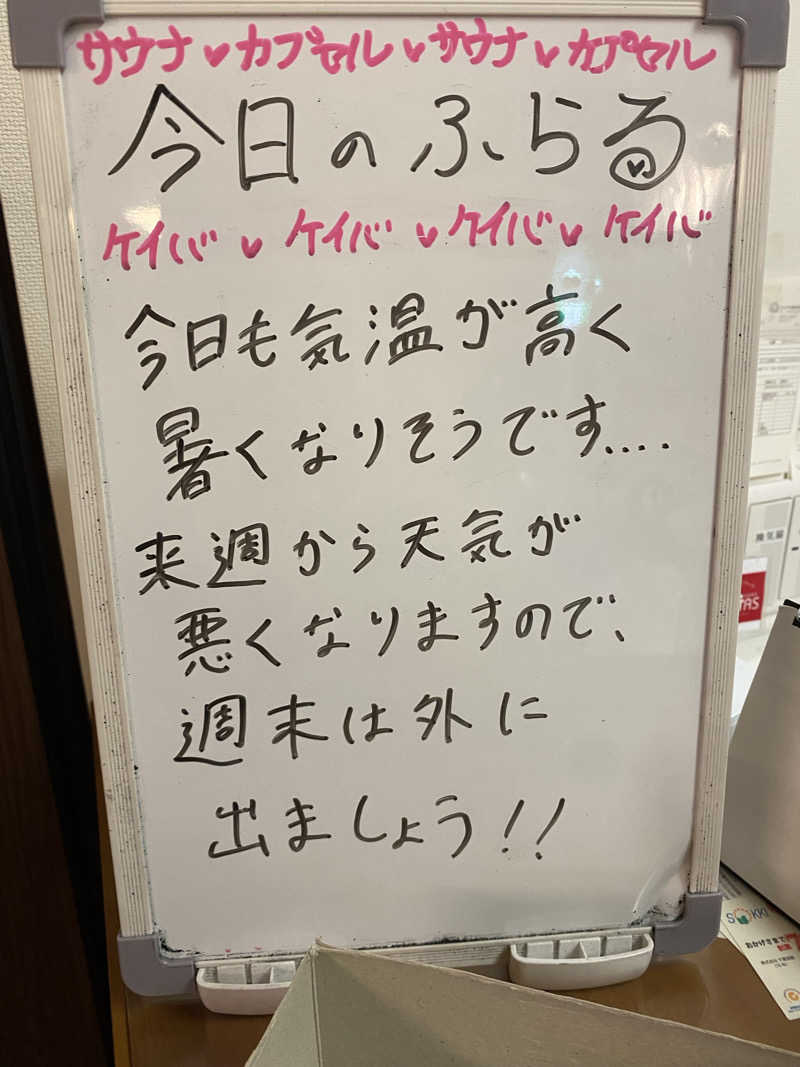 サウナ♥カプセル♥サウナ♥カプセル
今日のふらる
ケイバ♥ケイバ♥ケイバ♥ケイバ
今日も気温が高く
暑くなりそうです....
来週から天気が
悪くなりますので、
週末は外に
出ましょう!!
換気扇
おかげさまで